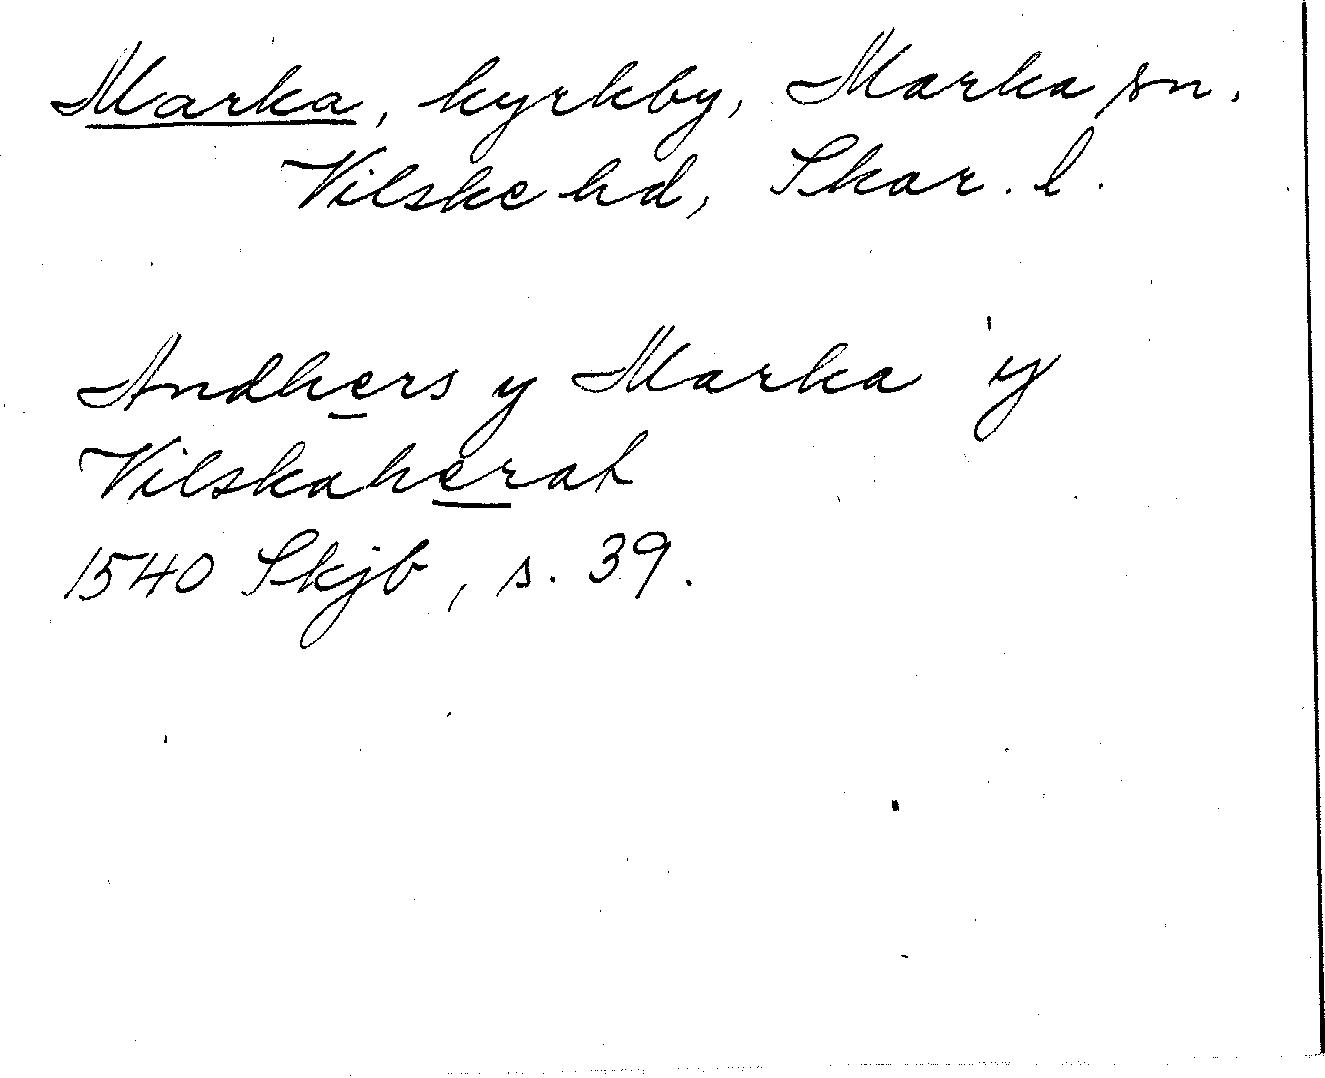 Marka, kyrkby, Marka sn.
Vilske hd, Skar. l.
Andhers y Marka y
Vilskaherat
1540 Skjb, s. 39.